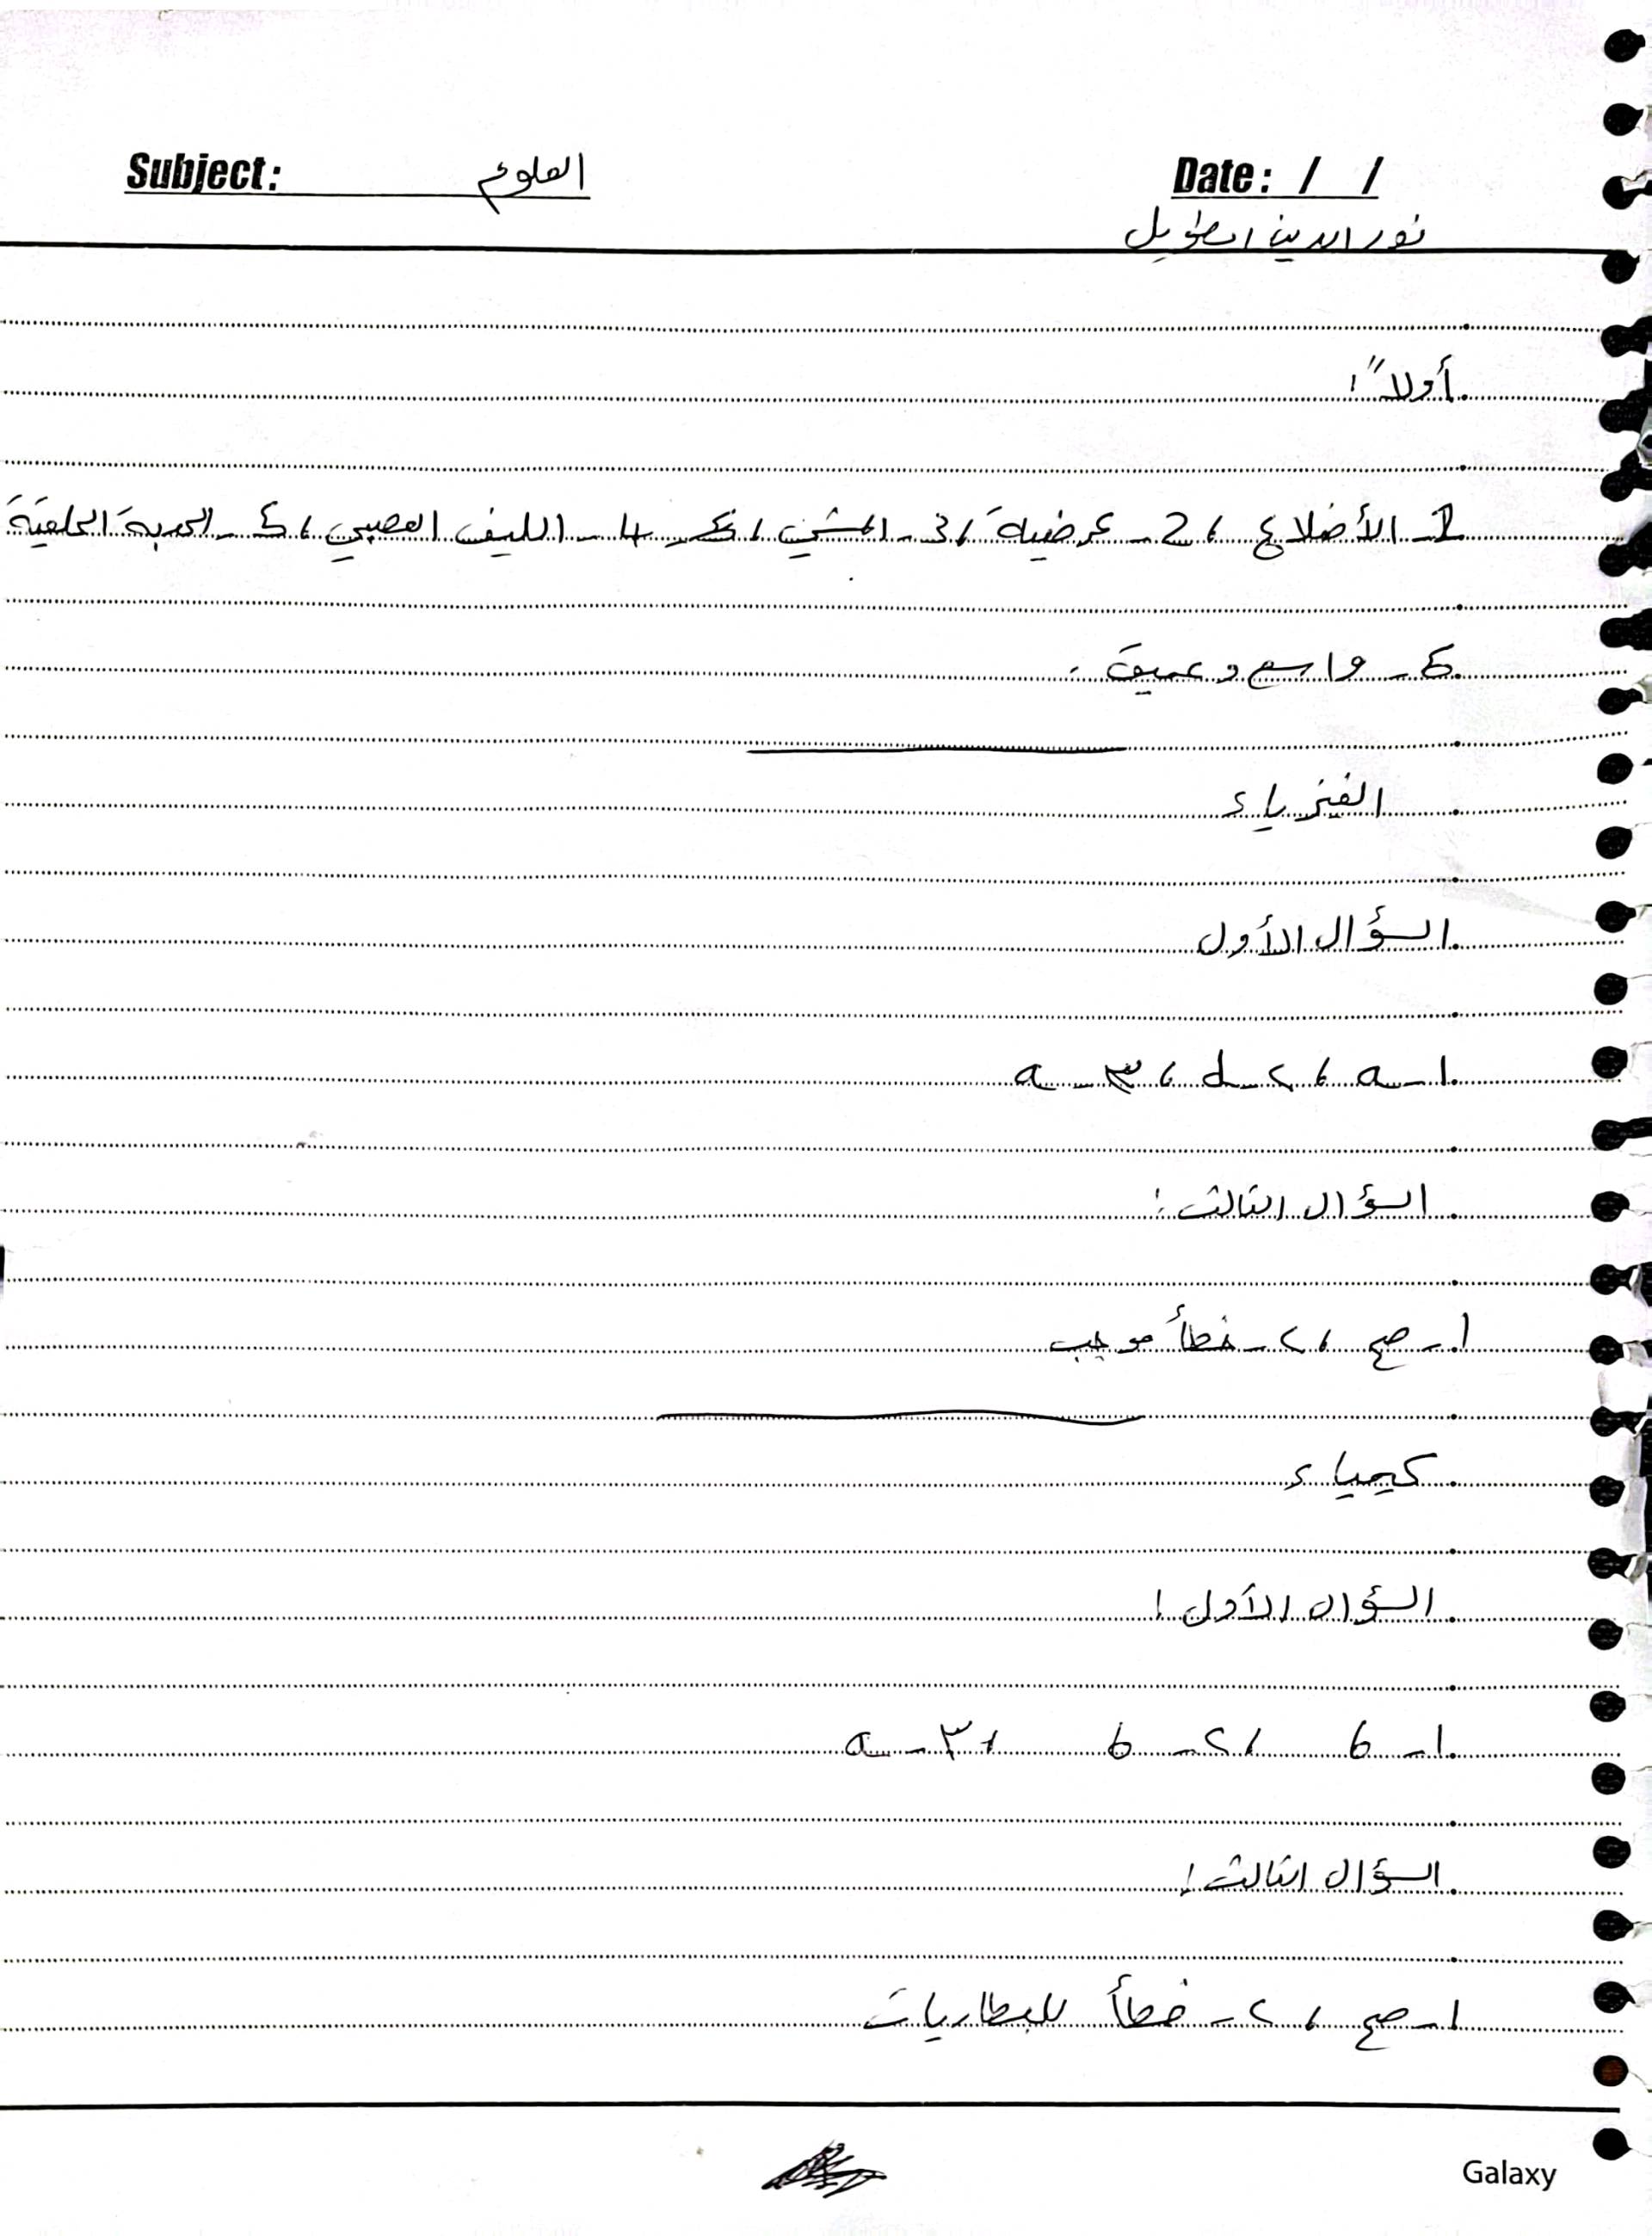 Subject: العلوم
Date: / /
نور الدين الطويل
أولاً:
1- الأضلاع ، 2- عرضية ، 3- المشي ، 4- الليف العصبي ، 5- الحدبة الحلقية
6- واسع وعميق .
الفيزياء
السؤال الأول
١- a ، ٢- d ، ٣- a
السؤال الثالث :
١- صح ، ٢- خطأ موجب
كيمياء
السؤال الأول :
١- b ، ٢- b ، ٣- a
السؤال الثالث :
١- صح ، ٢- خطأ للبطاريات
Galaxy